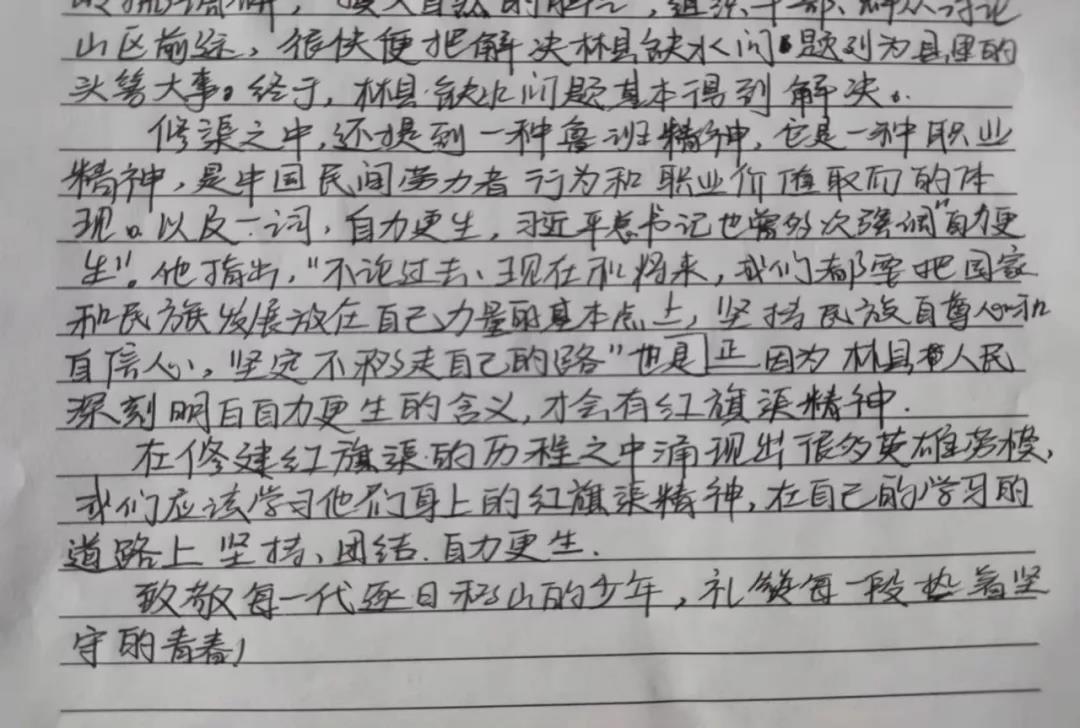 自然的
山区前途，很快便把解决林县缺水问题列为县里的
头等大事。终于，林县缺水问题基本得到解决。
修渠之中，还提到一种鲁班精神，它是一种职业
精神，是中国民间劳力者行为和职业价值取向的体
现。以及一词，自力更生，习近平总书记也曾多次强调"自力更
生"。他指出，"不论过去、现在和将来，我们都要把国家
和民族发展放在自己力量的基本点上，坚持民族自尊心和
自信心，坚定不移走自己的路"也是正因为林县人民
深刻明白自力更生的含义，才会有红旗渠精神.
在修建红旗渠的历程之中涌现出很多英雄劳模，
我们应该学习他们身上的红旗渠精神，在自己的学习的
道路上坚持、团结.自力更生.
致敬每一代逐日移山的少年，礼赞每一段执着坚
守的青春！